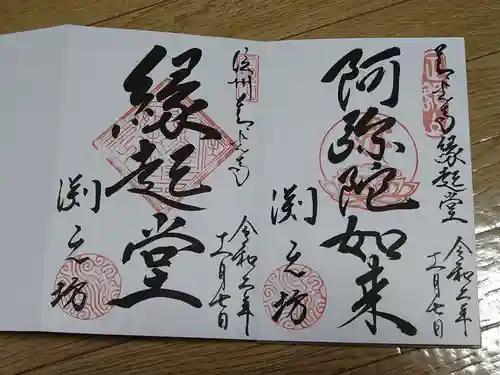 善光寺縁起堂
阿弥陀如来
渕之坊
令和元年
十一月七日
信州善光寺
縁起堂
渕之坊
令和元年
十一月七日